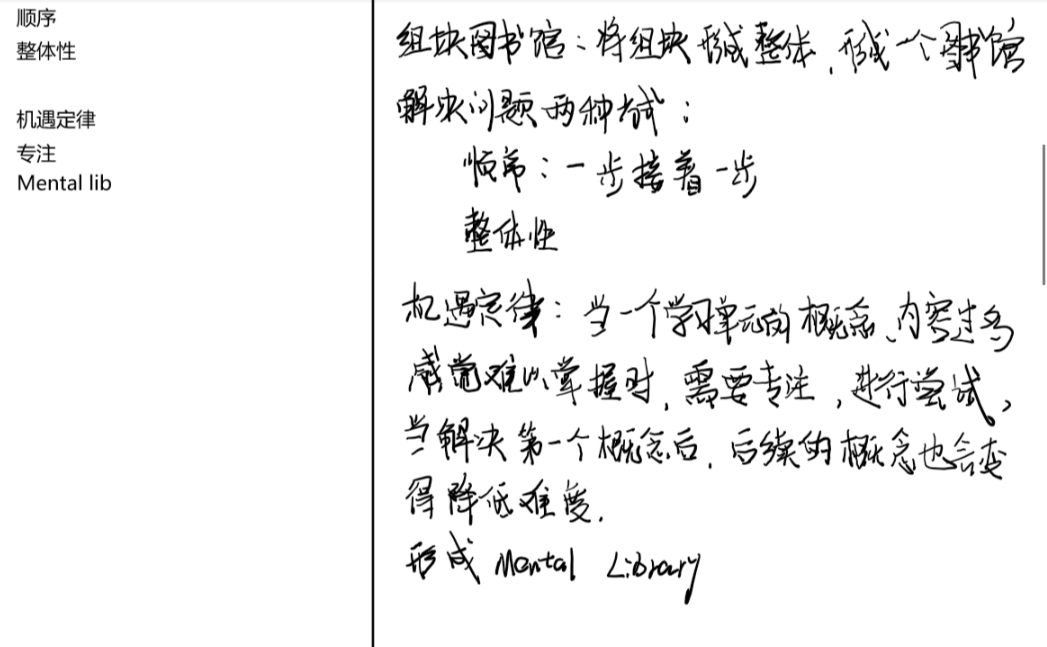 顺序
整体性
机遇定律
专注
Mental lib
组块图书馆：将组块形成整体，形成一个图书馆
解决问题两种方式：
顺序：一步接着一步
整体性
机遇定律：当一个学习单元的概念、内容过多
感觉难以掌握时，需要专注，进行尝试。
当解决第一个概念后，后续的概念也会变
得降低难度.
形成 Mental Library